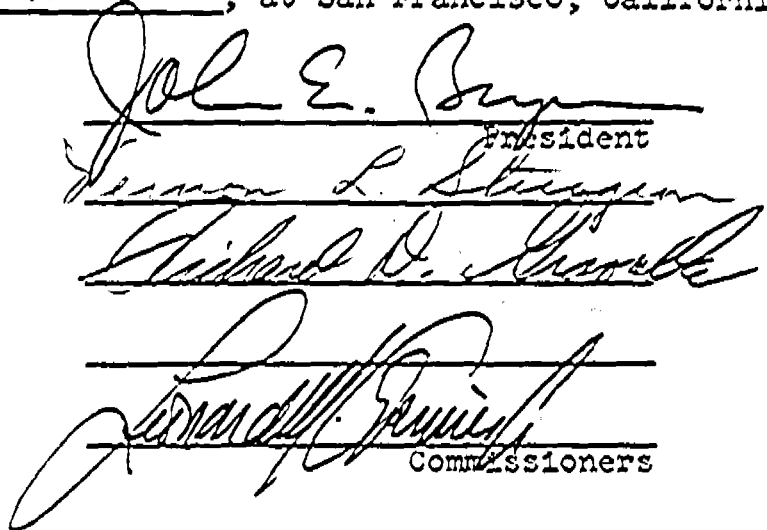 , at San Francisco, Californi
John E. Bryson
President
Vernon L. Sturgeon
Richard D. Gravelle
Leonard M. Grimes Jr.
Commissioners